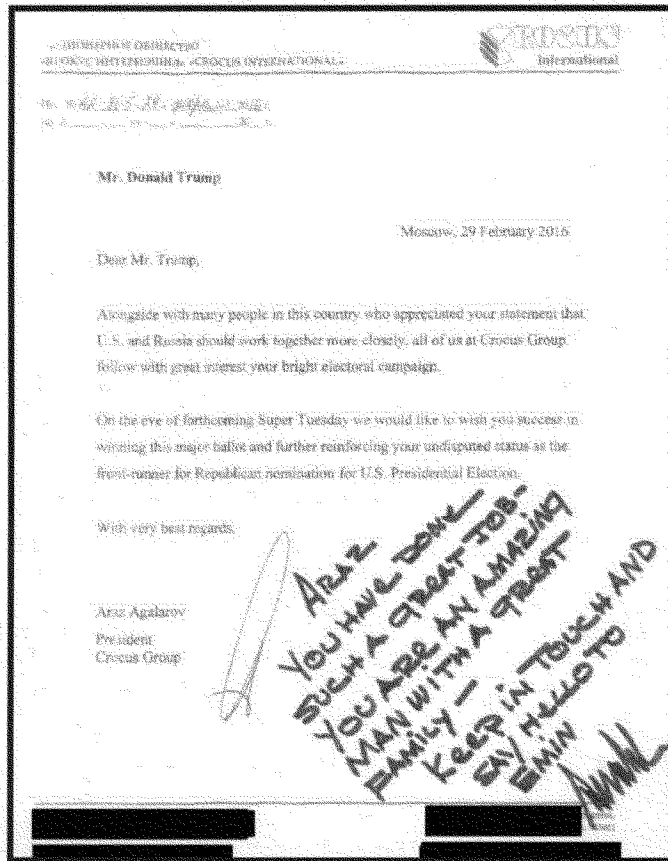 CROCUS
International
«CROCUS INTERNATIONAL»
Mr. Donald Trump
Moscow, 29 February 2016
Dear Mr. Trump,
Alongside with many people in this country who appreciated your statement that
U.S. and Russia should work together more closely, all of us at Crocus Group
follow with great interest your bright electoral campaign.
On the eve of forthcoming Super Tuesday we would like to wish you success in
winning this major ballot and further reinforcing your undisputed status as the
front-runner for Republican nomination for U.S. Presidential Election.
With very best regards,
Araz Agalarov
President
Crocus Group
ARAZ
YOU HAVE DONE
SUCH A GREAT JOB-
YOU ARE AN AMAZING
MAN WITH A GREAT
FAMILY —
KEEP IN TOUCH AND
SAY HELLO TO
EMIN